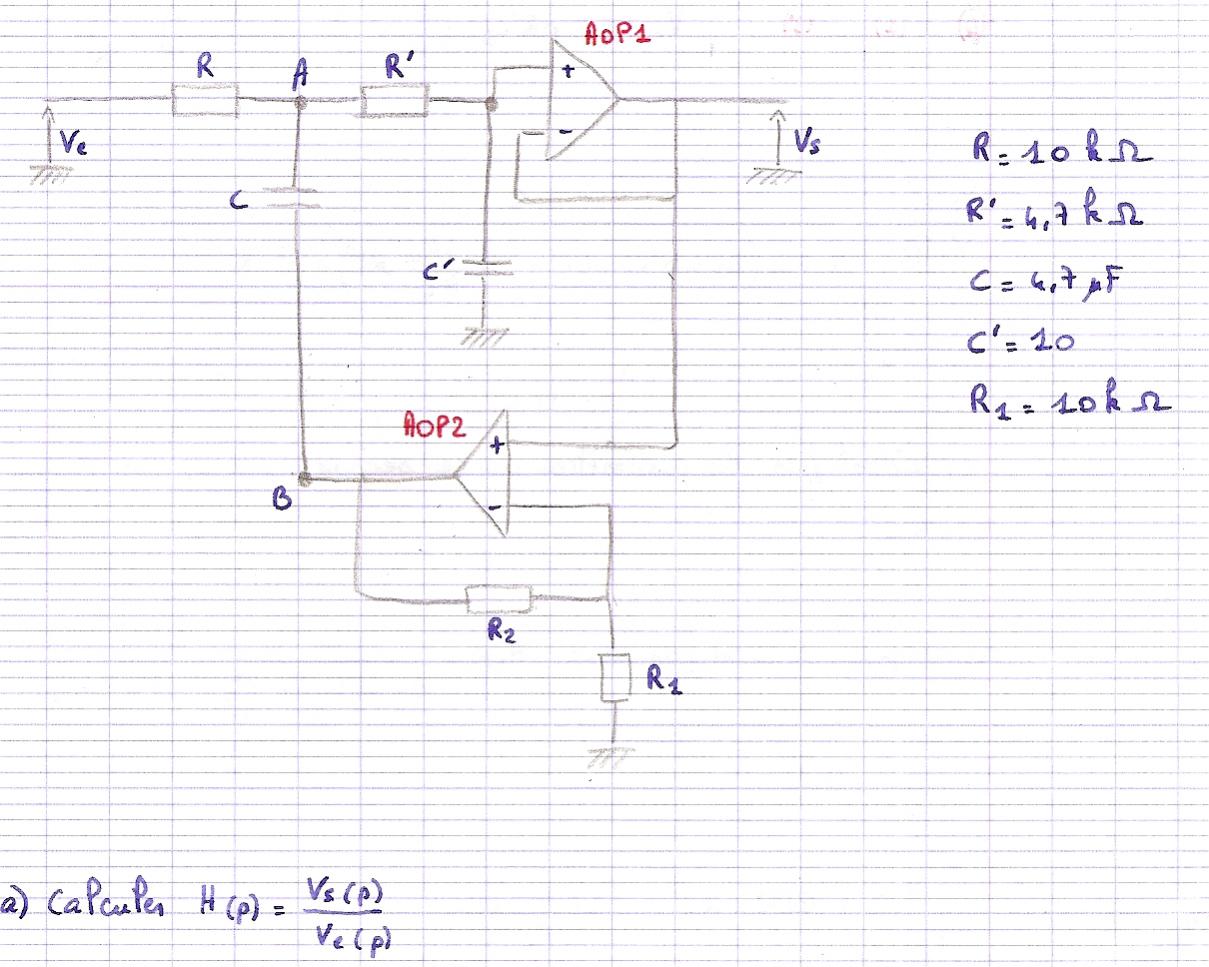 AOP1
R
A
R'
+
-
Ve
Vs
C
C'
R = 10 kΩ
R' = 4,7 kΩ
C = 4,7 µF
C' = 10
R1 = 10 kΩ
AOP2
+
-
B
R2
R1
a) Calculer H(p) = Vs(p) / Ve(p)